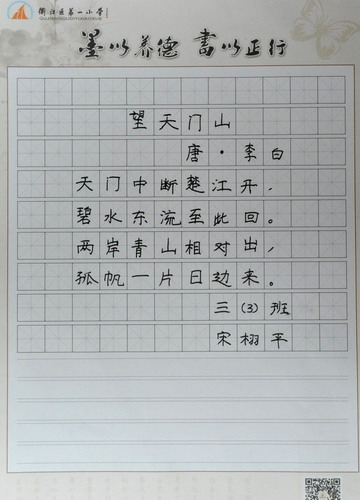 衢江区第一小学
墨以养德 书以正行
望天门山
唐·李白
天门中断楚江开,
碧水东流至此回。
两岸青山相对出,
孤帆一片日边来。
三(3)班
宋栩平